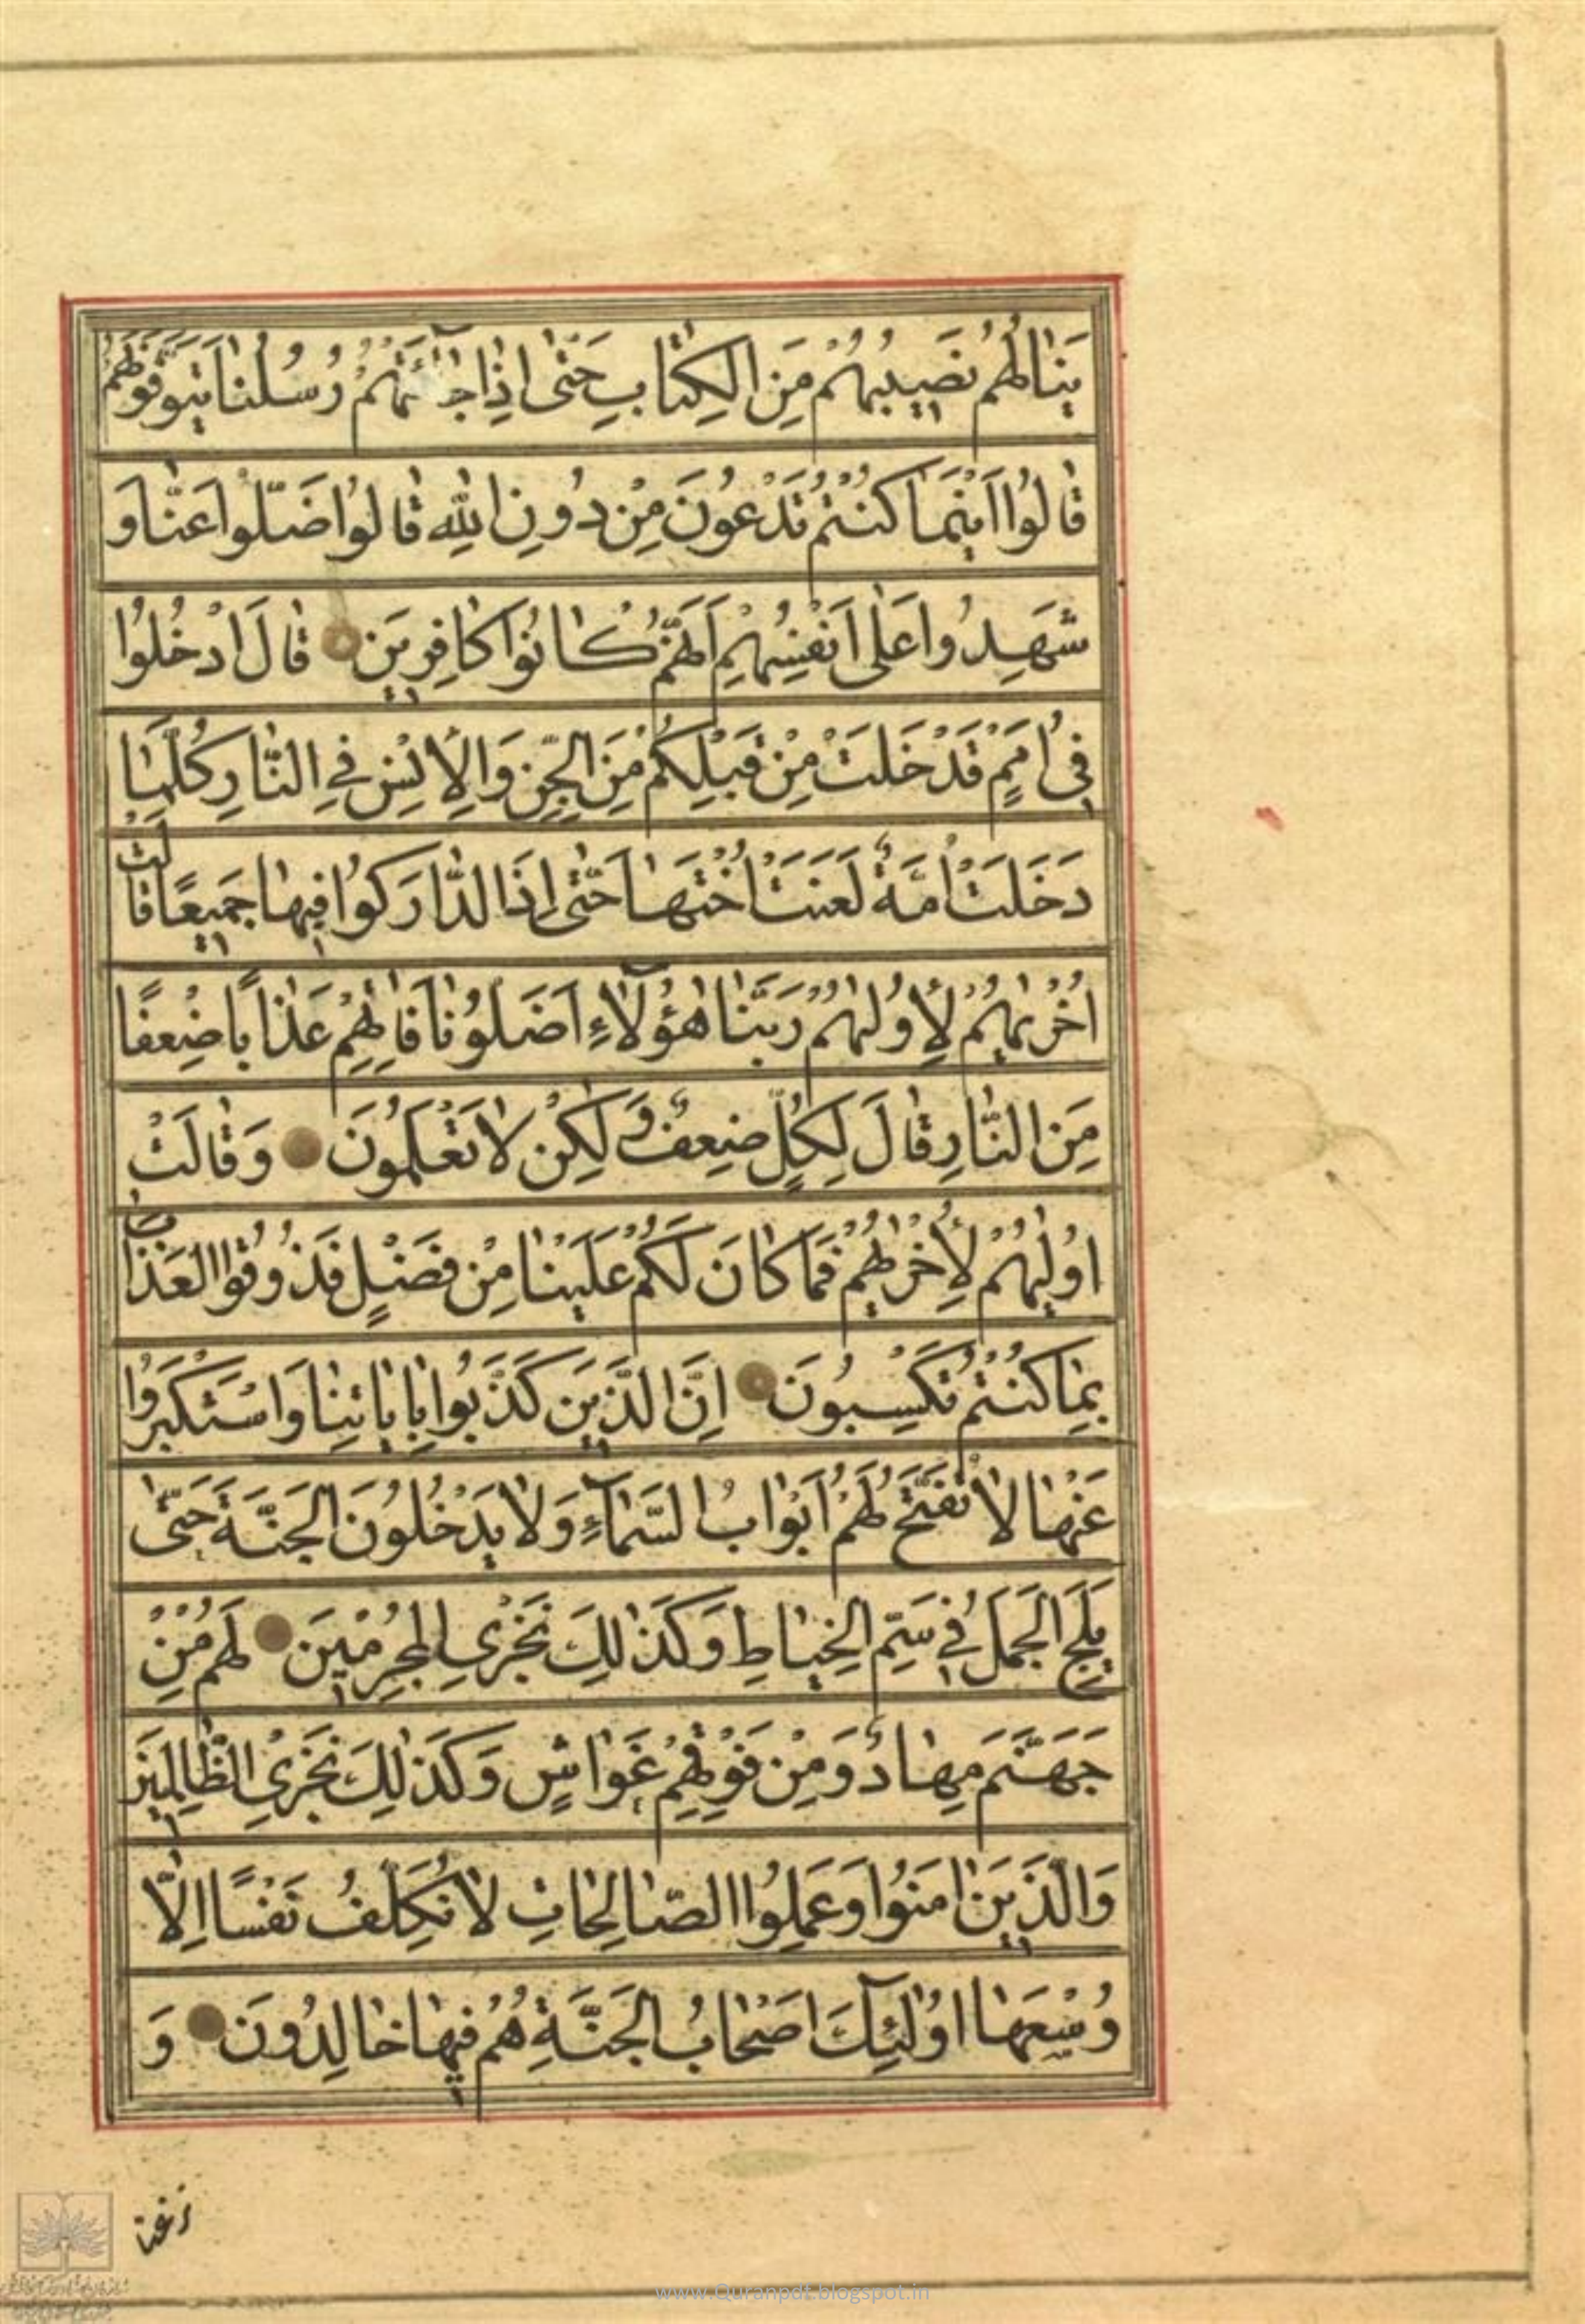 يَنَالُهُمْ نَصِيبُهُمْ مِنَ الْكِتَابِ حَتّٰى اِذَا جَآئَتْهُمْ رُسُلُنَا يَتَوَفَّوْنَهُمْ
قَالُوا اَيْنَمَا كُنْتُمْ تَدْعُونَ مِنْ دُونِ اللّٰهِ قَالُوا ضَلُّوا عَنَّا وَ
شَهِدُوا عَلٰى اَنْفُسِهِمْ اَنَّهُمْ كَانُوا كَافِرِينَ قَالَ ادْخُلُوا
فِى اُمَمٍ قَدْ خَلَتْ مِنْ قَبْلِكُمْ مِنَ الْجِنِّ وَالْاِنْسِ فِي النَّارِ كُلَّمَا
دَخَلَتْ اُمَّةٌ لَعَنَتْ اُخْتَهَا حَتّٰى اِذَا ادَّارَكُوا فِيهَا جَمِيعًا قَالَتْ
اُخْرٰيهُمْ لِاُولٰهُمْ رَبَّنَا هٰؤُلَآءِ اَضَلُّونَا فَاٰتِهِمْ عَذَابًا ضِعْفًا
مِنَ النَّارِ قَالَ لِكُلٍّ ضِعْفٌ وَلٰكِنْ لَا تَعْلَمُونَ وَقَالَتْ
اُولٰيهُمْ لِاُخْرٰيهُمْ فَمَا كَانَ لَكُمْ عَلَيْنَا مِنْ فَضْلٍ فَذُوقُوا الْعَذَابَ
بِمَا كُنْتُمْ تَكْسِبُونَ اِنَّ الَّذِينَ كَذَّبُوا بِاٰيَاتِنَا وَاسْتَكْبَرُوا
عَنْهَا لَا تُفَتَّحُ لَهُمْ اَبْوَابُ السَّمَآءِ وَلَا يَدْخُلُونَ الْجَنَّةَ حَتّٰى
يَلِجَ الْجَمَلُ فِي سَمِّ الْخِيَاطِ وَكَذٰلِكَ نَجْزِي الْمُجْرِمِينَ لَهُمْ مِنْ
جَهَنَّمَ مِهَادٌ وَمِنْ فَوْقِهِمْ غَوَاشٍ وَكَذٰلِكَ نَجْزِي الظَّالِمِينَ
وَالَّذِينَ اٰمَنُوا وَعَمِلُوا الصَّالِحَاتِ لَا نُكَلِّفُ نَفْسًا اِلَّا
وُسْعَهَا اُولٰئِكَ اَصْحَابُ الْجَنَّةِ هُمْ فِيهَا خَالِدُونَ وَ
نزعنا
www.Quranpdf.blogspot.in